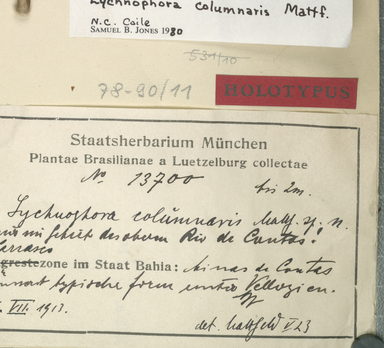 Lychnophora columnaris Mattf.
N.C. Coile
SAMUEL B. JONES 1980
531/10
78-90/11
HOLOTYPUS
Staatsherbarium München
Plantae Brasilianae a Luetzelburg collectae
No 13700 bis 2m.
Lychnophora columnaris Mattf. sp. n.
im Gebiet des oberen Rio de Contas!
Carrasco
grestezone im Staat Bahia: Minas de Contas
typische form unter Vellozien.
VII. 1913.
det. Mattfeld V 23